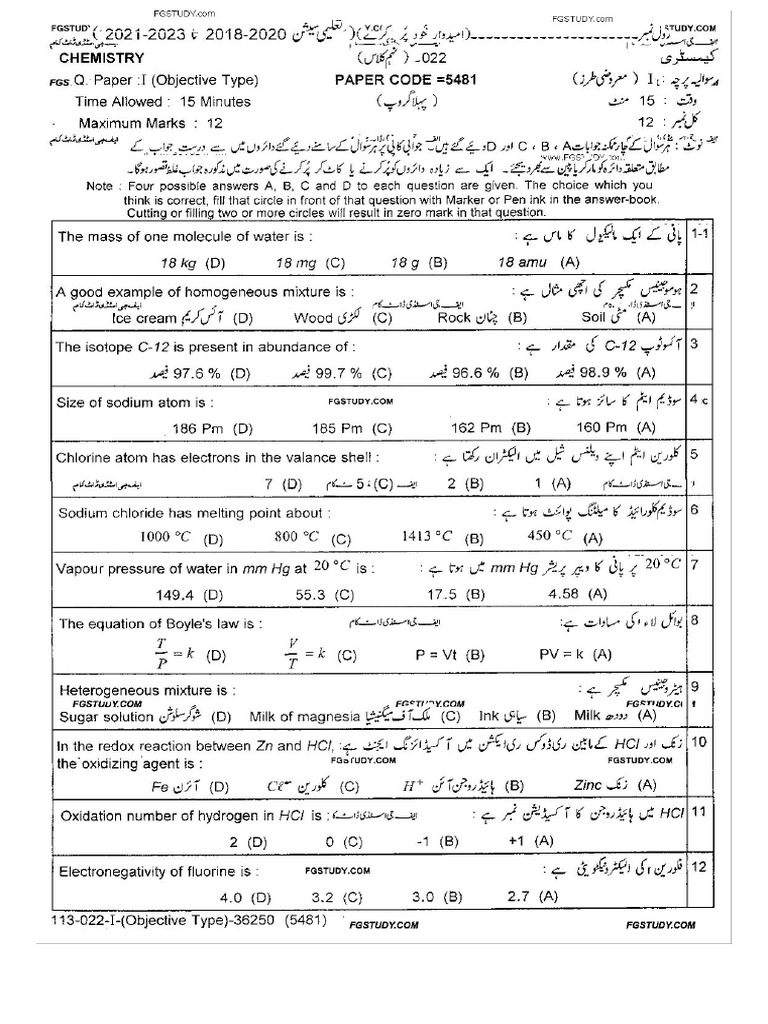 FGSTUDY.com
FGSTUDY.com
FGSTUDY.COM رول نمبر---------------------(امیدوار خود پُر کرے)( تعلیمی سیشن 2018-2020 تا 2021-2023 ) FGSTUDY
ایف جی اسٹڈی ڈاٹ کام
CHEMISTRY 022- (نہم کلاس) کیمسٹری
FGS. Q. Paper :I (Objective Type) PAPER CODE =5481 سوالیہ پرچہ : I (معروضی طرز)
Time Allowed : 15 Minutes (پہلا گروپ) وقت : 15 منٹ
Maximum Marks : 12 کل نمبر : 12
نوٹ : ہر سوال کے چار ممکنہ جوابات A، B، C اور D دیے گئے ہیں۔ جوابی کاپی پر ہر سوال کے سامنے دیئے گئے دائروں میں سے درست جواب کے
www.FGSTUDY.com
مطابق متعلقہ دائرہ کو مارکر یا پین سے بھر دیجئے۔ ایک سے زیادہ دائروں کو پُر کرنے یا کاٹ کر پُر کرنے کی صورت میں مذکورہ جواب غلط تصور ہوگا۔
Note : Four possible answers A, B, C and D to each question are given. The choice which you
think is correct, fill that circle in front of that question with Marker or Pen ink in the answer-book.
Cutting or filling two or more circles will result in zero mark in that question.
The mass of one molecule of water is : پانی کے ایک مالیکیول کا ماس ہے : 1-1
18 kg (D) 18 mg (C) 18 g (B) 18 amu (A)
A good example of homogeneous mixture is : ہوموجینیس مکسچر کی اچھی مثال ہے : 2
ایف جی اسٹڈی ڈاٹ کام ایف جی اسٹڈی ڈاٹ کام
Ice cream آئس کریم (D) Wood لکڑی (C) Rock چٹان (B) Soil مٹی (A)
The isotope C-12 is present in abundance of : آئسوٹوپ C-12 کی مقدار ہے : 3
فیصد 97.6 % (D) فیصد 99.7 % (C) فیصد 96.6 % (B) فیصد 98.9 % (A)
Size of sodium atom is : FGSTUDY.COM سوڈیم ایٹم کا سائز ہوتا ہے : 4
186 Pm (D) 185 Pm (C) 162 Pm (B) 160 Pm (A)
Chlorine atom has electrons in the valance shell : کلورین ایٹم اپنے ویلنس شیل میں الیکٹران رکھتا ہے : 5
ایف جی اسٹڈی ڈاٹ کام 7 (D) 5 (C) 2 (B) 1 (A)
Sodium chloride has melting point about : سوڈیم کلورائیڈ کا میلٹنگ پوائنٹ ہوتا ہے : 6
1000 °C (D) 800 °C (C) 1413 °C (B) 450 °C (A)
Vapour pressure of water in mm Hg at 20 °C is : 20 °C پر پانی کا ویپر پریشر mm Hg میں ہوتا ہے : 7
149.4 (D) 55.3 (C) 17.5 (B) 4.58 (A)
The equation of Boyle's law is : ایف جی اسٹڈی ڈاٹ کام بوائل لاء کی مساوات ہے : 8
T/P = k (D) V/T = k (C) P = Vt (B) PV = k (A)
Heterogeneous mixture is : ہیٹروجینیس مکسچر ہے : 9
FGSTUDY.COM FGSTUDY.COM
Sugar solution شوگر سلوشن (D) Milk of magnesia ملک آف میگنیشیا (C) Ink سیاہی (B) Milk دودھ (A)
In the redox reaction between Zn and HCl, زنک اور HCl کے مابین ری ڈوکس ری ایکشن میں آکسیڈائزنگ ایجنٹ ہے : 10
the oxidizing agent is : FGSTUDY.COM FGSTUDY.COM
Fe آئرن (D) Cℓ⁻ کلورین (C) H⁺ ہائیڈروجن آئن (B) Zinc زنک (A)
Oxidation number of hydrogen in HCl is : HCl میں ہائیڈروجن کا آکسیڈیشن نمبر ہے : 11
2 (D) 0 (C) -1 (B) +1 (A)
Electronegativity of fluorine is : FGSTUDY.COM فلورین کی الیکٹرونیگیٹویٹی ہے : 12
4.0 (D) 3.2 (C) 3.0 (B) 2.7 (A)
113-022-I-(Objective Type)-36250 (5481) FGSTUDY.COM FGSTUDY.COM